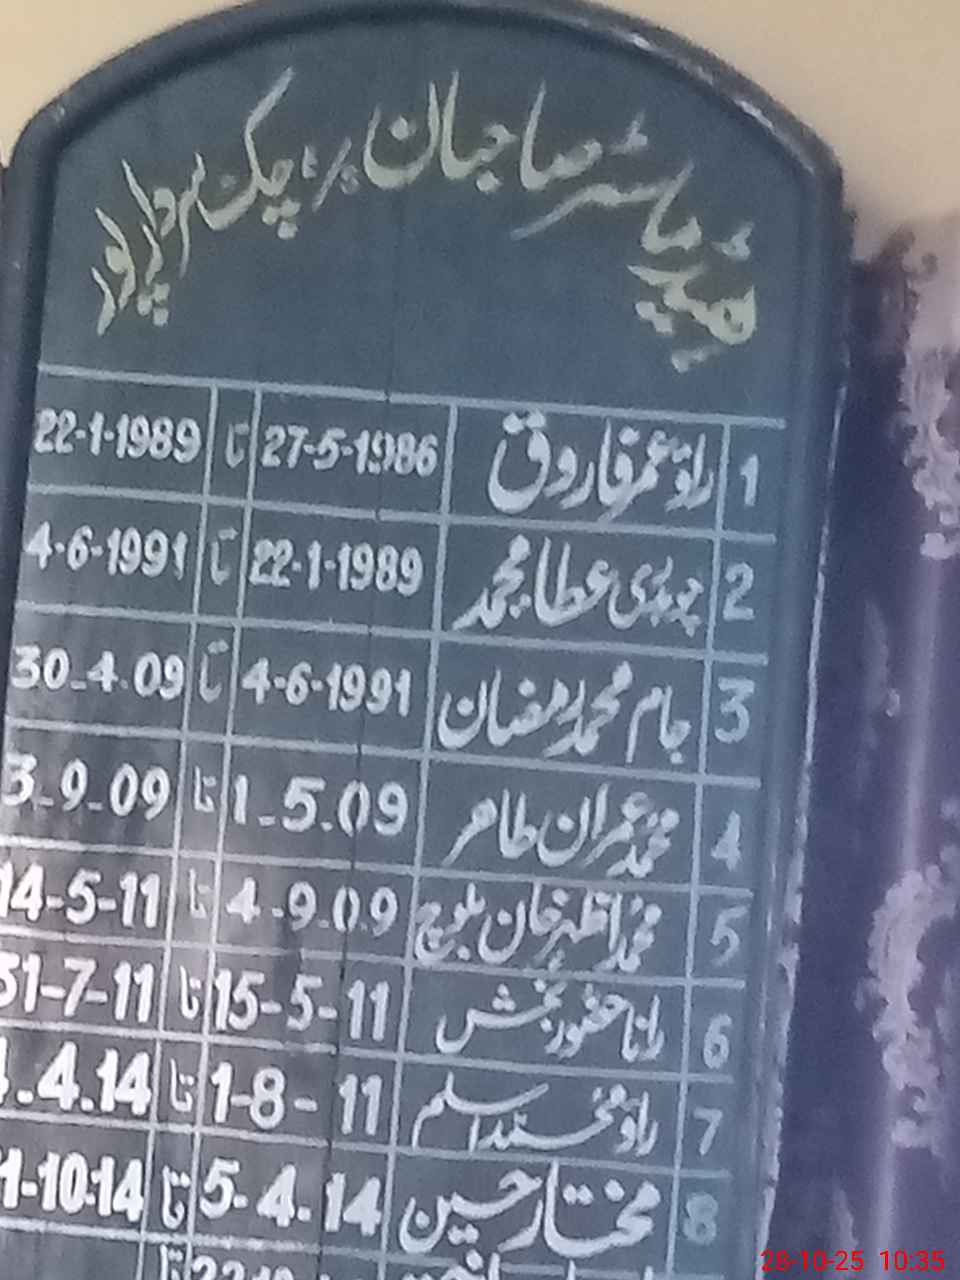 ہیڈ ماسٹر صاحبان چک سردار پور
1 راؤ عمر فاروق 27-5-1986 تا 22-1-1989
2 چوہدری عطا محمد 22-1-1989 تا 4-6-1991
3 جام محمد رمضان 4-6-1991 تا 30-4-09
4 محمد عمران طاہر 1-5-09 تا 3-9-09
5 محمد اظہر خان بلوچ 4-9-09 تا 14-5-11
6 رانا حضور بخش 15-5-11 تا 31-7-11
7 راؤ محمد اسلم 1-8-11 تا 4.4.14
8 مختار حسین 5-4-14 تا 1-10-14
تا
28-10-25 10:35